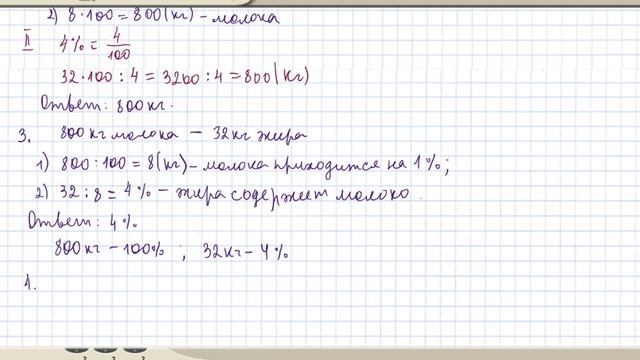 2) 8·100=800(кг)-молока
II 4%=4/100
32·100:4=3200:4=800(кг)
Ответ: 800кг.
3. 800кг молока – 32кг жира
1) 800:100=8(кг)-молока приходится на 1%;
2) 32:8=4% – жира содержит молоко.
Ответ: 4%
800кг – 100% ; 32кг – 4%
1.